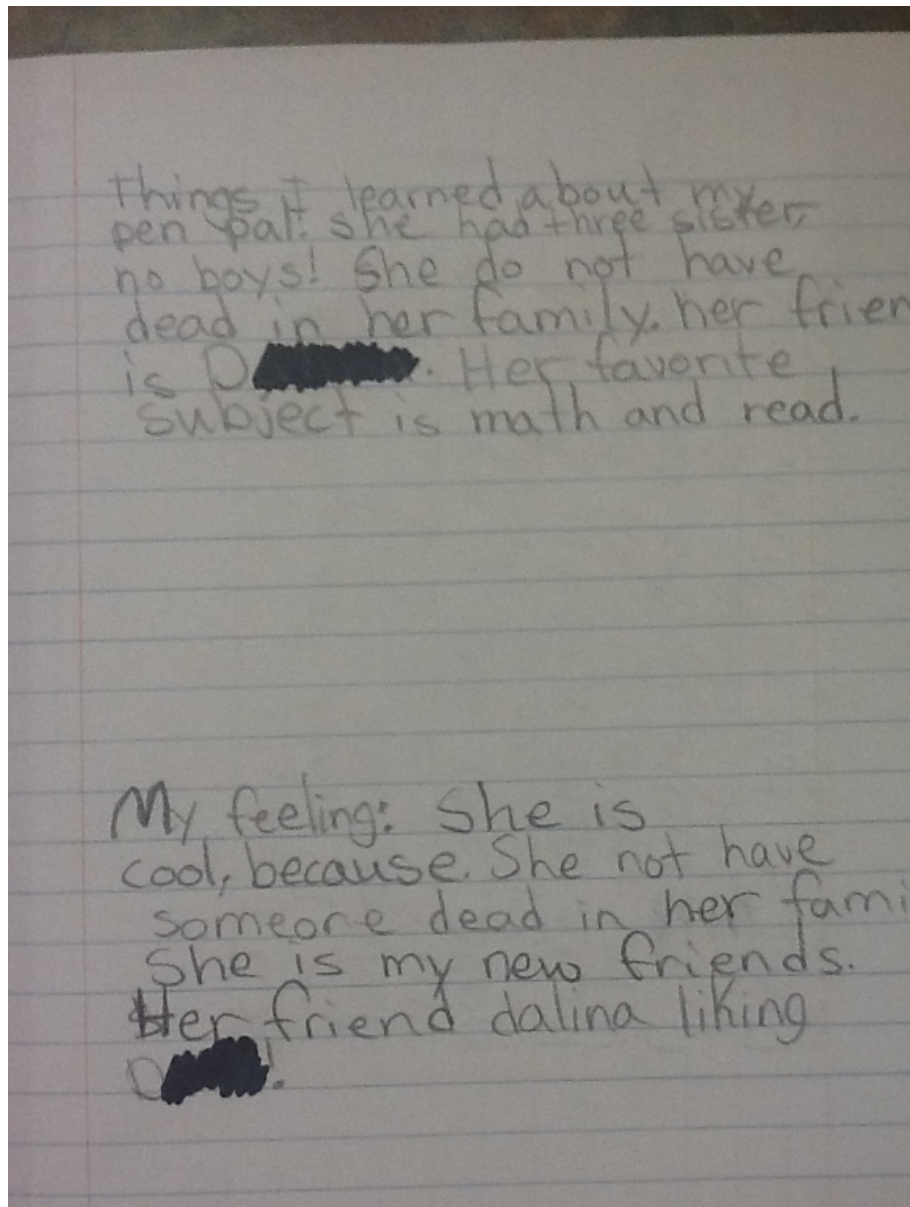 Things I learned about my
pen pal: she had three sister,
no boys! She do not have
dead in her family. her frien
is D
. Her favorite
subject is math and read.
My feeling: She is
cool, because. She not have
someone dead in her fami
She is my new friends.
Her friend dalina liking
D
!.